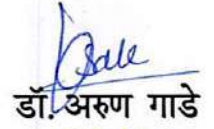 डॉ. अरुण गाडे